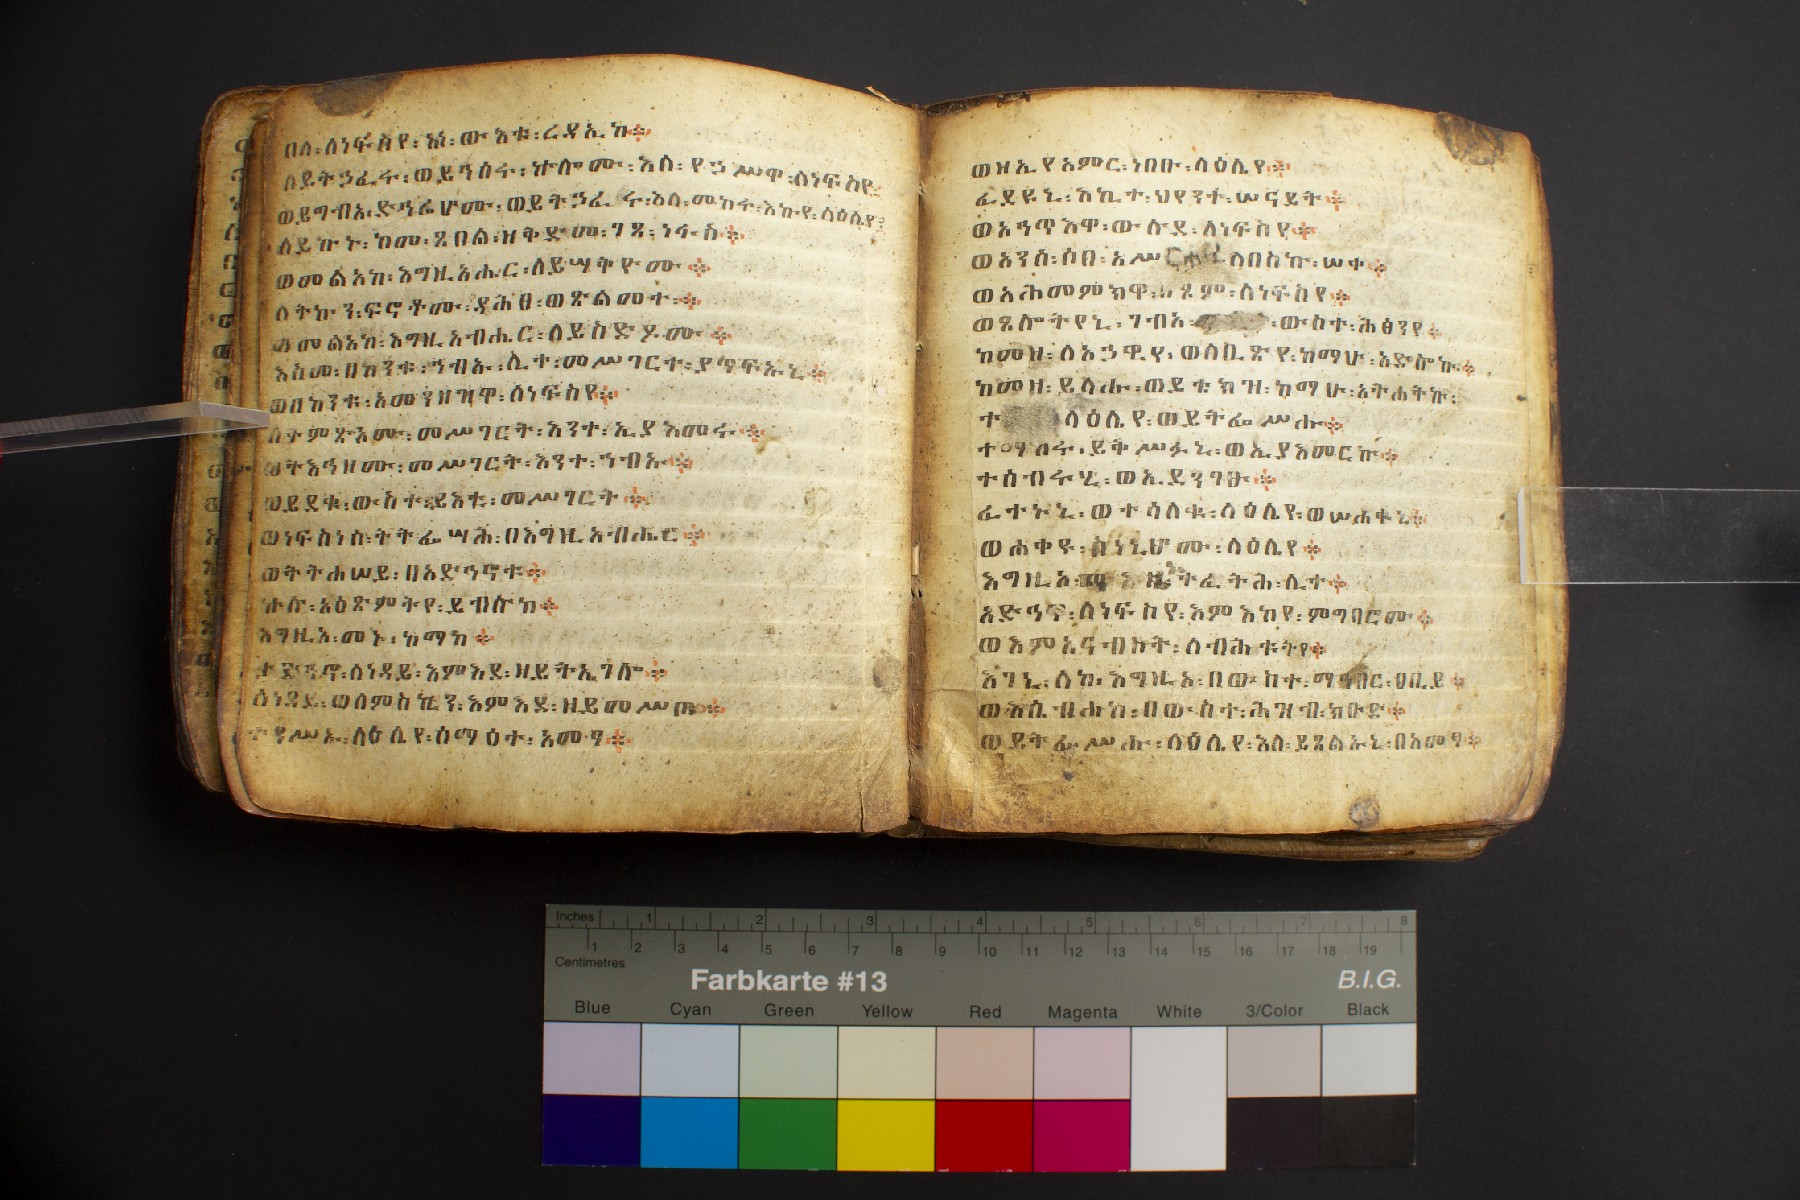 በላ፡ለነፍስየ፡አነ፡ውእቱ፡ረዳኢኪ፨
ለይትኃፈሩ፡ወይኅሰሩ፡ኵሎሙ፡እለ፡የኃሥዋ፡ለነፍስየ፨
ወይግብኡ፡ድኅሬሆሙ፡ወይትኃፈሩ፡እለ፡መከሩ፡እኩየ፡ላዕሌየ፨
ለይኩኑ፡ከመ፡ጸበል፡ዘቅድመ፡ገጸ፡ነፋስ፨
ወመልአከ፡እግዚአብሔር፡ለይሣቅዮሙ፨
ለትኩን፡ፍኖቶሙ፡ዳሕፀ፡ወጽልመተ፨
ወመልአከ፡እግዚአብሔር፡ለይስድዶሙ፨
እስመ፡በከንቱ፡ኀብኡ፡ሊተ፡መሥገርተ፡ያጥፍኡኒ፨
ወበከንቱ፡አመንዘዝዋ፡ለነፍስየ፨
ለትምጽኦሙ፡መሥገርት፡እንተ፡ኢያእመሩ፨
ወትእኀዞሙ፡መሥገርት፡እንተ፡ኀብኡ፨
ወይደቁ፡ውስተ፡ይእቲ፡መሥገርት፨
ወነፍስየሰ፡ትትፌሣሕ፡በእግዚአብሔር፨
ወትትሐሠይ፡በአድኅኖቱ፨
ኵሉ፡አዕጽምትየ፡ይብሉከ፨
እግዚኦ፡መኑ፡ከማከ፨
ታድኅኖ፡ለነዳይ፡እምእደ፡ዘይትኄገሎ፨
ለነዳይ፡ወለምስኪን፡እምእደ፡ዘይመሥጦ፨
ተንሥኡ፡ላዕሌየ፡ሰማዕተ፡አመፃ፨
ወዘኢየአምር፡ነበቡ፡ላዕሌየ፨
ፈደዩኒ፡እኪተ፡ህየንተ፡ሠናይት፨
ወአኅጥእዋ፡ውሉደ፡ለነፍስየ፨
ወአንሰ፡ሶበ፡ለበስኩ፡ሠቀ፨
ወአሕመምክዋ፡በጾም፡ለነፍስየ፨
ወጸሎትየኒ፡ገብአ፡ውስተ፡ሕፅንየ፨
ከመዘ፡ለአኃዊየ፡ወለቢጽየ፡ከማሁ፡አድሎኩ፨
ከመዘ፡ይላሑ፡ወይቴክዝ፡ከማሁ፡አትሐትኩ፡
ላዕሌየ፡ወይትፌሥሑ፨
ይቅሥፉኒ፡ወኢያእመርኩ፨
ተሰብሩሂ፡ወኢደንገፁ፨
ፈተኑኒ፡ወተሳለቁ፡ላዕሌየ፡ወሠሐቁኒ፨
ወሐቀዩ፡ስነኒሆሙ፡ላዕሌየ፨
እግዚኦ፡ትፈትሕ፡ሊተ፨
አድኅና፡ለነፍስየ፡እምእከየ፡ምግባሮሙ፨
ወእምአናብስት፡ለብሕቱትየ፨
እገኒ፡ለከ፡እግዚኦ፡በውስተ፡ማኅበር፡ዐቢይ፨
ወእሴብሐከ፡በውስተ፡ሕዝብ፡ክቡድ፨
ወይትፌሥሑ፡ላዕሌየ፡እለ፡ይጸልኡኒ፡በአመፃ፨
Inches
Centimetres
Farbkarte #13
B.I.G.
Blue Cyan Green Yellow Red Magenta White 3/Color Black